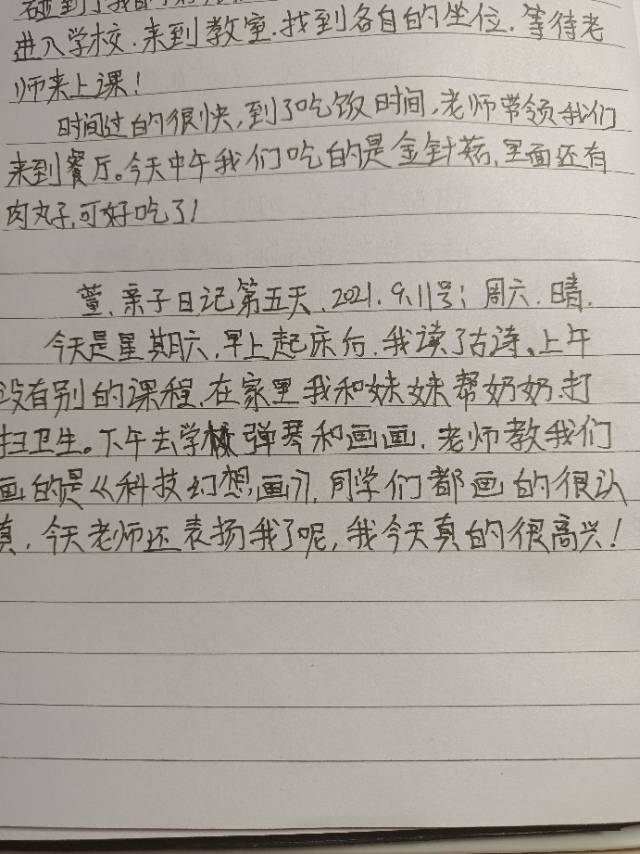 碰到了我
进入学校.来到教室.找到各自的坐位.等待老
师来上课!
时间过的很快,到了吃饭时间,老师带领我们
来到餐厅。今天中午我们吃的是金针菇,里面还有
肉丸子,可好吃了!
萱、亲子日记第五天.2021.9.11号;周六.晴.
今天是星期六,早上起床后.我读了古诗、上午
没有别的课程,在家里我和妹妹帮奶奶打
扫卫生。下午去学校弹琴和画画.老师教我们
画的是《科技幻想画》,同学们都画的很认
真.今天老师还表扬我了呢,我今天真的很高兴!